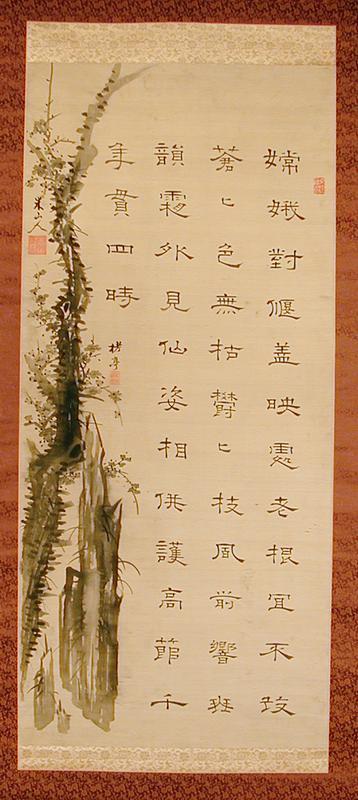 嫦娥對偃蓋映處老根宜不改
蒼〻色無枯欝〻枝風前響班
韻霜外見仙姿相併護高節千
年貫四時
米山人